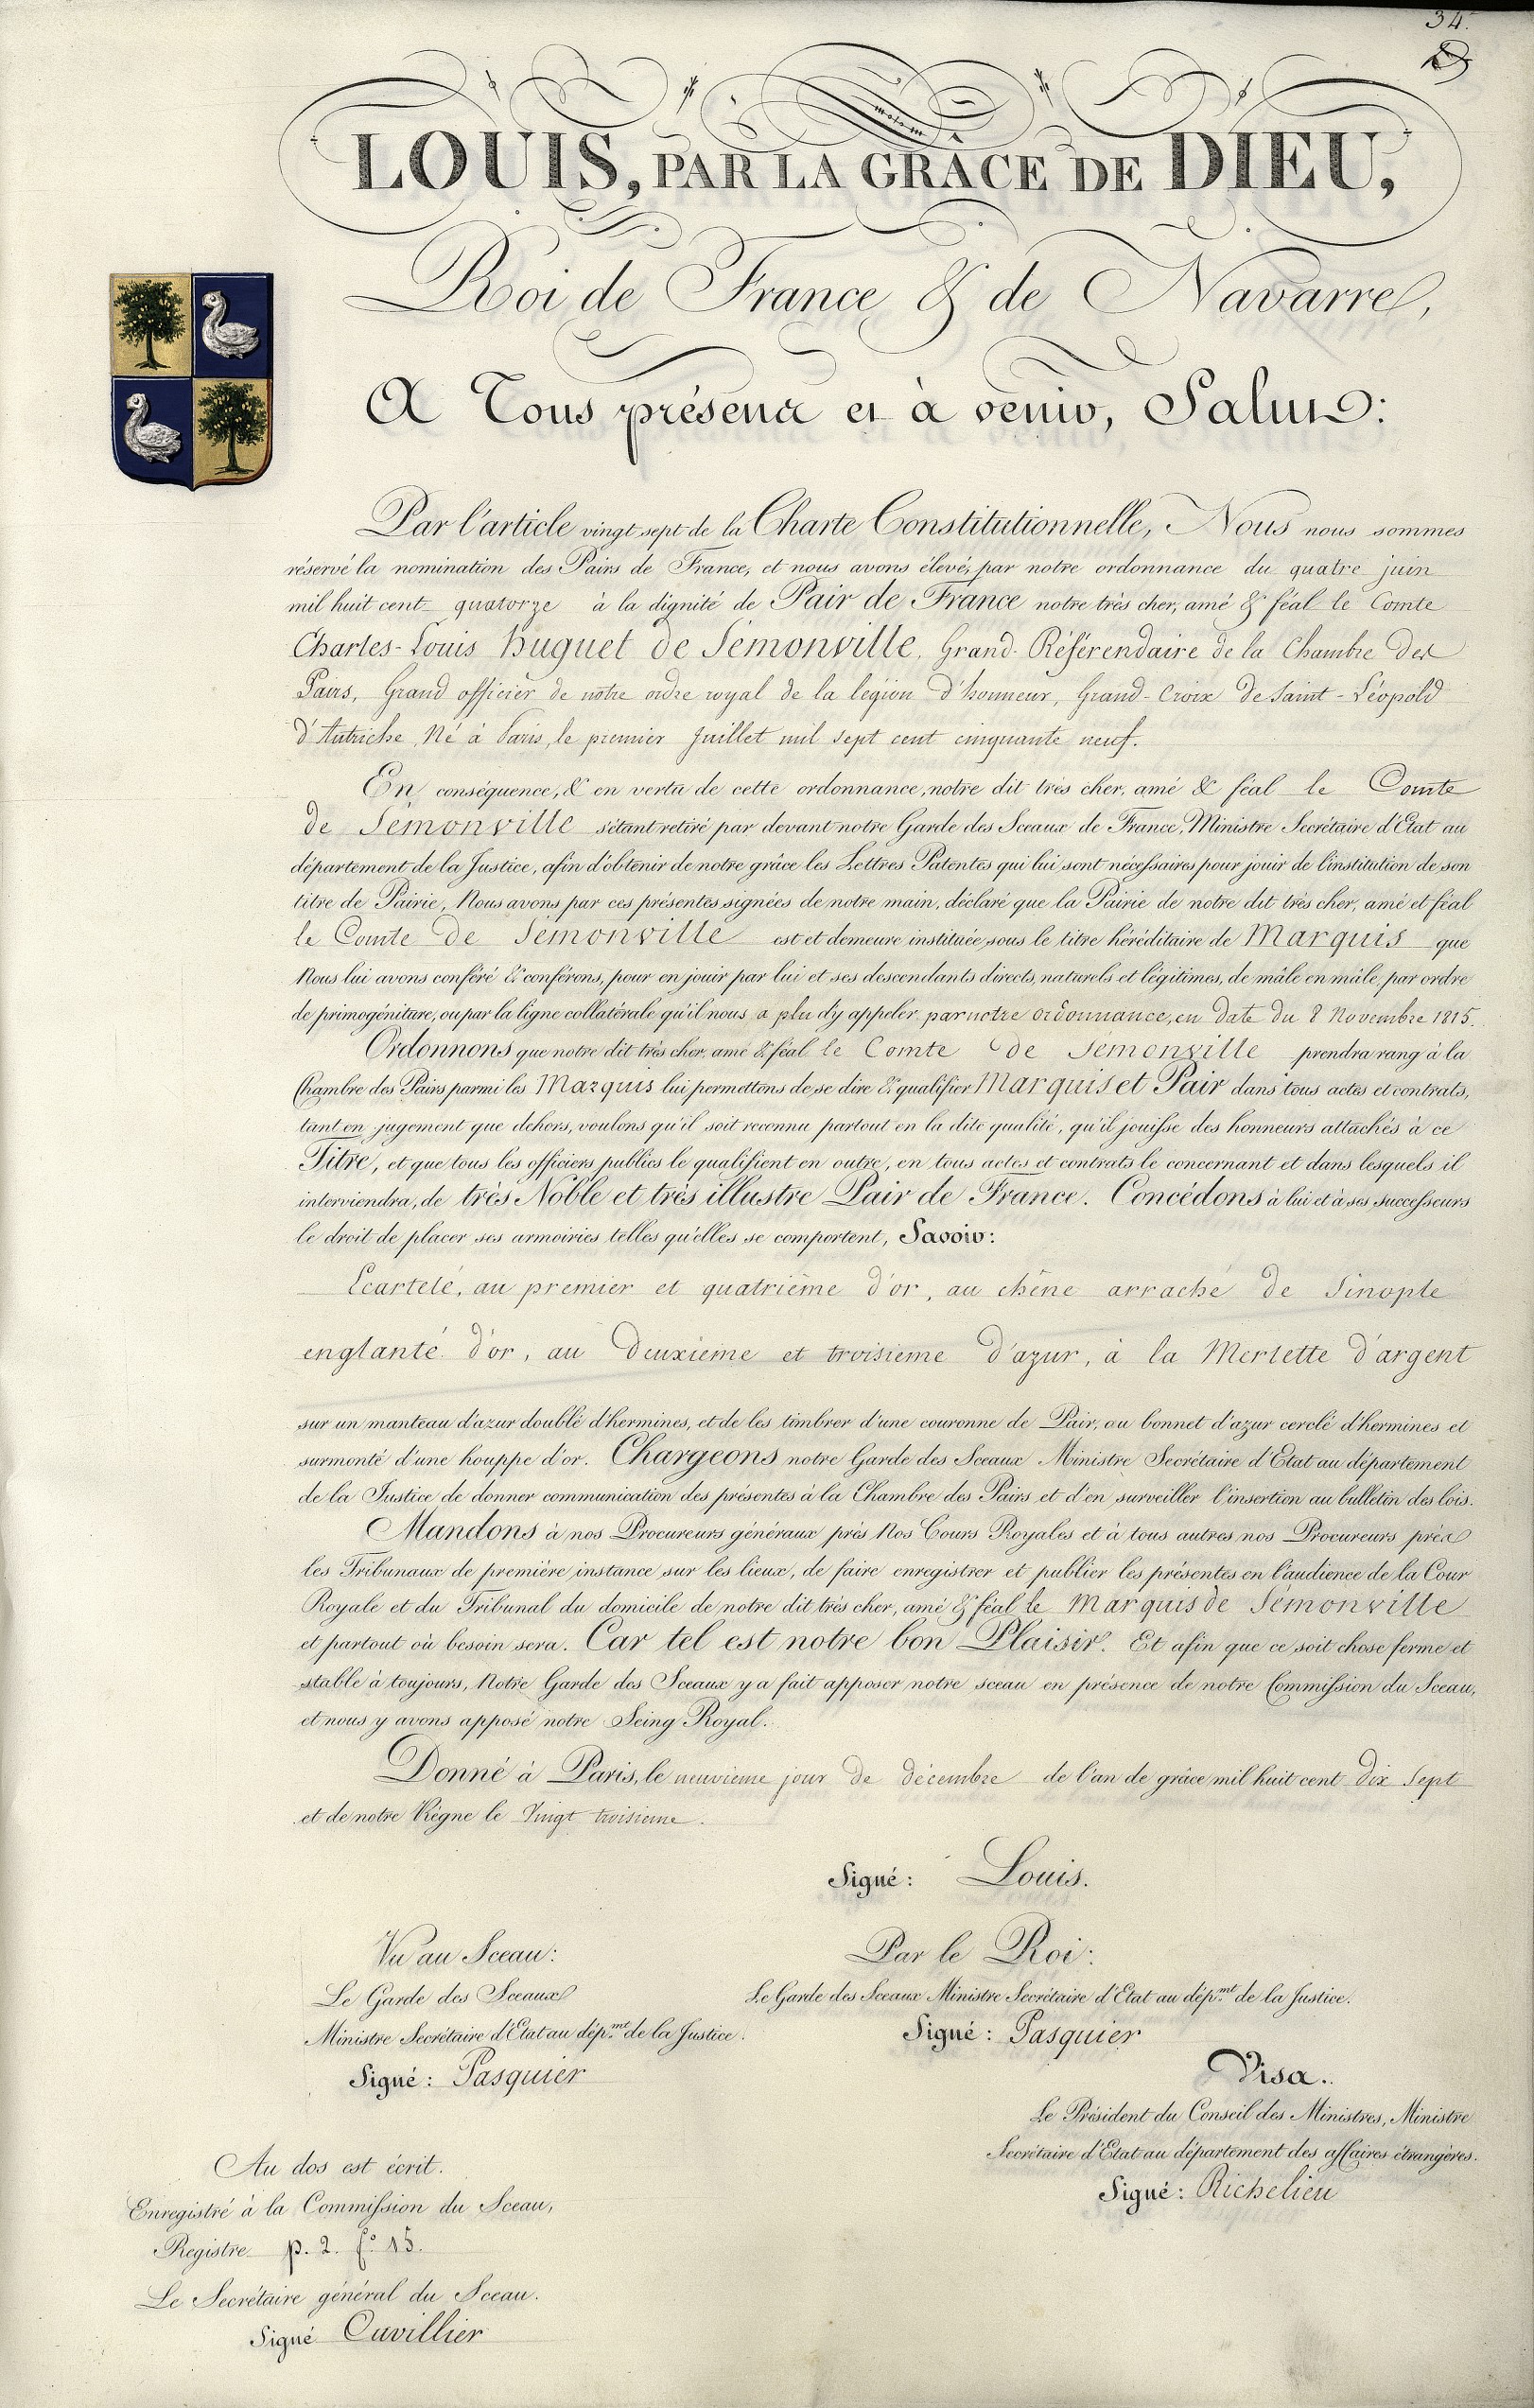 34.
LOUIS, PAR LA GRÂCE DE DIEU,
Roi de France & de Navarre,
A Tous présens et à venir, Salut:
Par l'article vingt sept de la Charte Constitutionnelle, Nous nous sommes
réservé la nomination des Pairs de France, et nous avons élevé, par notre ordonnance du quatre juin
mil huit cent quatorze à la dignité de Pair de France notre très cher, amé & féal le Comte
Charles-Louis Huguet de Sémonville, Grand-Référendaire de la Chambre des
Pairs, Grand officier de notre ordre royal de la légion d'honneur, Grand-Croix de Saint-Léopold
d'Autriche, Né à Paris, le premier Juillet mil sept cent cinquante neuf.
En conséquence, & en vertu de cette ordonnance, notre dit très cher, amé & féal le Comte
de Sémonville s'étant retiré par devant notre Garde des Sceaux de France, Ministre Secrétaire d'Etat au
département de la Justice, afin d'obtenir de notre grâce les Lettres Patentes qui lui sont nécessaires pour jouir de l'institution de son
titre de Pairie, Nous avons par ces présentes signées de notre main, déclaré que la Pairie de notre dit très cher, amé et féal
le Comte de Sémonville est et demeure instituée sous le titre héréditaire de Marquis que
Nous lui avons conféré & conférons, pour en jouir par lui et ses descendants directs, naturels et légitimes, de mâle en mâle, par ordre
de primogéniture, ou par la ligne collatérale qu'il nous a plu d'y appeler par notre ordonnance, en date du 8 Novembre 1815.
Ordonnons que notre dit très cher, amé & féal le Comte de Sémonville prendra rang à la
Chambre des Pairs parmi les Marquis lui permettons de se dire & qualifier Marquis et Pair dans tous actes et contrats,
tant en jugement que dehors, voulons qu'il soit reconnu partout en la dite qualité, qu'il jouisse des honneurs attachés à ce
Titre, et que tous les officiers publics le qualifient en outre, en tous actes et contrats le concernant et dans lesquels il
interviendra, de très Noble et très illustre Pair de France. Concédons à lui et à ses successeurs
le droit de placer ses armoiries telles qu'elles se comportent, Savoir:
Ecartelé, au premier et quatrième d'or, au chêne arraché de Sinople
englanté d'or, au deuxième et troisième d'azur, à la Merlette d'argent
sur un manteau d'azur doublé d'hermines, et de les timbrer d'une couronne de Pair, ou bonnet d'azur cerclé d'hermines et
surmonté d'une houppe d'or. Chargeons notre Garde des Sceaux Ministre Secrétaire d'Etat au département
de la Justice de donner communication des présentes à la Chambre des Pairs et d'en surveiller l'insertion au bulletin des lois.
Mandons à nos Procureurs généraux près Nos Cours Royales et à tous autres nos Procureurs près
les Tribunaux de première instance sur les lieux, de faire enregistrer et publier les présentes en l'audience de la Cour
Royale et du Tribunal du domicile de notre dit très cher, amé & féal le Marquis de Sémonville
et partout où besoin sera. Car tel est notre bon Plaisir. Et afin que ce soit chose ferme et
stable à toujours, Notre Garde des Sceaux y a fait apposer notre sceau en présence de notre Commission du Sceau,
et nous y avons apposé notre Seing Royal.
Donné à Paris, le neuvième jour de décembre de l'an de grâce mil huit cent dix Sept
et de notre Règne le Vingt troisième.
Signé: Louis.
Vu au Sceau:
Le Garde des Sceaux
Ministre Secrétaire d'Etat au dép.mt de la Justice.
Signé: Pasquier
Par le Roi:
Le Garde des Sceaux Ministre Secrétaire d'Etat au dép.mt de la Justice.
Signé: Pasquier
Visa.
Le Président du Conseil des Ministres, Ministre
Secrétaire d'Etat au département des affaires étrangères.
Signé: Richelieu
Au dos est écrit.
Enregistré à la Commission du Sceau,
Registre p. 2. f.° 15.
Le Secrétaire général du Sceau.
Signé Cuvillier